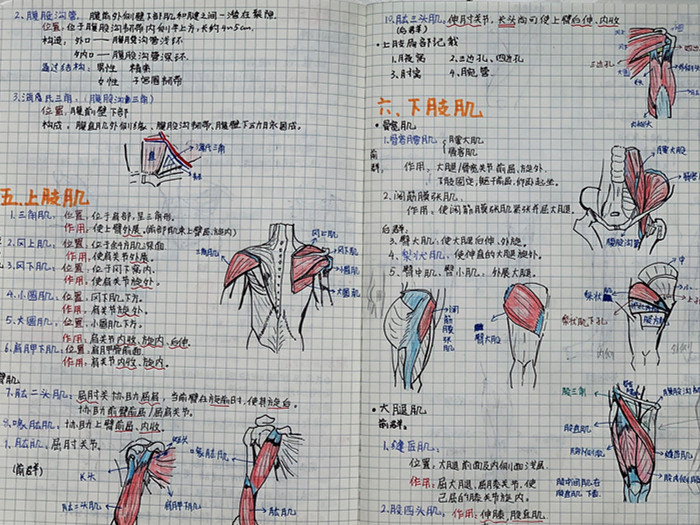 2.腹股沟管. 腹前外侧壁下部肌和腱之间一潜在裂隙.
位置:位于腹股沟韧带内侧半上方,长约4~5cm.
构造: 外口——腹股沟管浅环
内口——腹股沟管深环.
通过结构: 男性 精索
女性 子宫圆韧带
3.海氏三角:(腹股沟三角)
位置:腹前壁下部
构成:腹直肌外侧缘、腹股沟韧带,腹壁下动脉围成.
海氏三角
五.上肢肌
1.三角肌:位置:位于肩部,呈三角形.
作用:使上臂外展.(前部肌束上臂屈,旋内)
2.冈上肌:位置:位于斜方肌深面
作用:使肩关节外展.
3.冈下肌:位置:位于冈下窝内.
作用:使肩关节旋外.
4.小圆肌:位置:冈下肌下方.
作用:肩关节旋外.
5.大圆肌:位置:小圆肌下方.
作用:肩关节内收、旋内、后伸
6.肩胛下肌:位置:肩胛骨前面
作用:肩关节内收、旋内.
三角肌
冈上肌
冈下肌
小圆肌
大圆肌
臂肌
7.肱二头肌:屈肘关节,协助屈肩,当前臂在旋前时,使其旋后.
协助前臂前屈/屈肩关节.
8.喙肱肌:协助上臂前屈、内收.
9.肱肌:屈肘关节.
(前群)
长头
短头
肱二头肌
肩胛下肌
喙肱肌
肱肌
10.肱三头肌:伸肘关节,长头尚可使上臂后伸、内收
(后群)
·上肢局部记载
1.腋窝
2.三边孔、四边孔
3.肘窝
4.腕管.
三边孔
大圆肌
长头
六.下肢肌
·髋肌
前群:
1.髂腰肌
腰大肌
髂肌
作用:大腿/髋关节前屈,旋外.
下肢固定,躯干前屈,仰卧起坐.
2.阔筋膜张肌.
作用:使阔筋膜张肌紧张并屈大腿.
后群:
3.臀大肌:使大腿后伸、外旋.
4.梨状肌:使伸直的大腿旋外.
5.臀中肌、臀小肌:外展大腿.
腰大肌
髂肌
腹股沟韧带
阔筋膜张肌
臀大肌
梨状肌
梨状肌下孔
·大腿肌
前群.
1.缝匠肌
位置:大腿前面及内侧面浅层.
作用:屈大腿,屈膝关节,使
已屈的膝关节旋内.
2.股四头肌:作用:伸膝,股直肌.
股三角
股直肌
股外侧肌
股中间肌在
股直肌下面.
腹股沟韧带
缝匠肌
股内侧肌